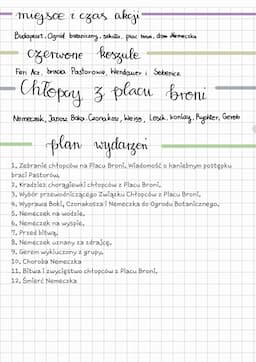 miejsce i czas akcji
Budapeszt, Ogród botaniczny, szkoła, plac broni, dom Nemeczka
czerwone koszule
Feri Acz, bracia Pastorowie, Wendauer i Sebenicz
Chłopcy z placu broni
Nemeczek, Janosz Boka, Czonakosz, Weisz, Leszik, Kolnay, Rychter, Gereb
plan wydarzeń
1. Zebranie chłopców na Placu Broni. Wiadomość o haniebnym postępku
braci Pastorów.
2. Kradzież chorągiewki chłopców z Placu Broni.
3. Wybór przewodniczącego Związku Chłopców z Placu Broni.
4. Wyprawa Boki, Czonakosza i Nemeczka do Ogrodu Botanicznego.
5. Nemeczek na wodzie.
6. Nemeczek na wyspie.
7. Przed bitwą.
8. Nemeczek uznany za zdrajcę.
9. Gerem wykluczony z grupy.
10. Choroba Nemeczka
11. Bitwa i zwycięstwo chłopców z Placu Broni.
12. Śmierć Nemeczka